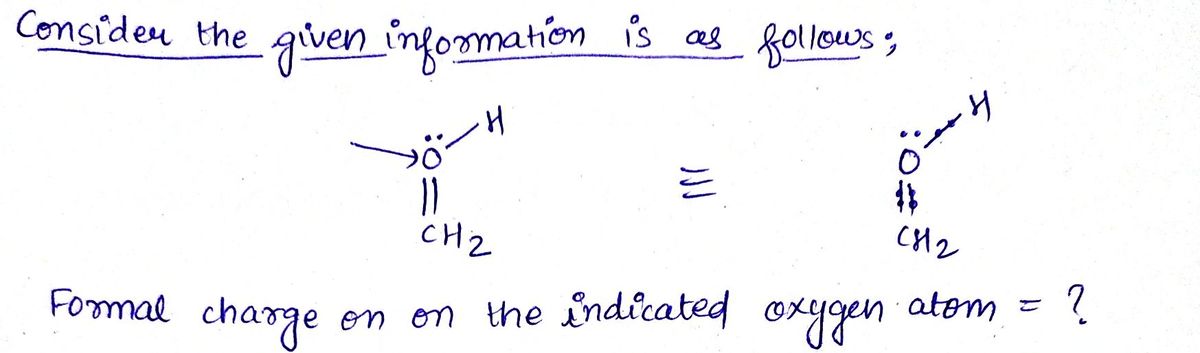 Consider the given information is as follows;
H H
Ö Ö
|| ≡ ||
CH2 CH2
Formal charge on on the indicated oxygen atom = ?